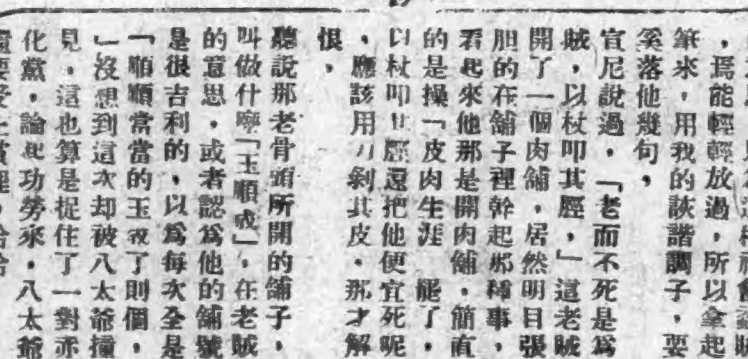 ，焉能輕輕放過，所以拿起
筆來，用我的詼諧調子，要
奚落他幾句，
宣尼說過，「老而不死是爲
賊，以杖叩其脛，」這老賊
開了一個肉舖，居然明目張
胆的在舖子裡幹起那種事，
看起來他那是開肉舖，簡直
的是操「皮肉生涯　罷了，
以杖叩其脛還把他便宜死呢
，應該用刀剝其皮，那才解
恨，
聽說那老骨頭所開的舖子，
叫做什麽「玉順成」，在老賊
的意思，或者認爲他的舖號
是很吉利的，以爲每次全是
「順順當當的玉成了則個，
」沒想到這次却被八太爺撞
見，這也算是捉住了一對赤
化黨，論起功勞來，八太爺
還要受上賞哩，哈哈